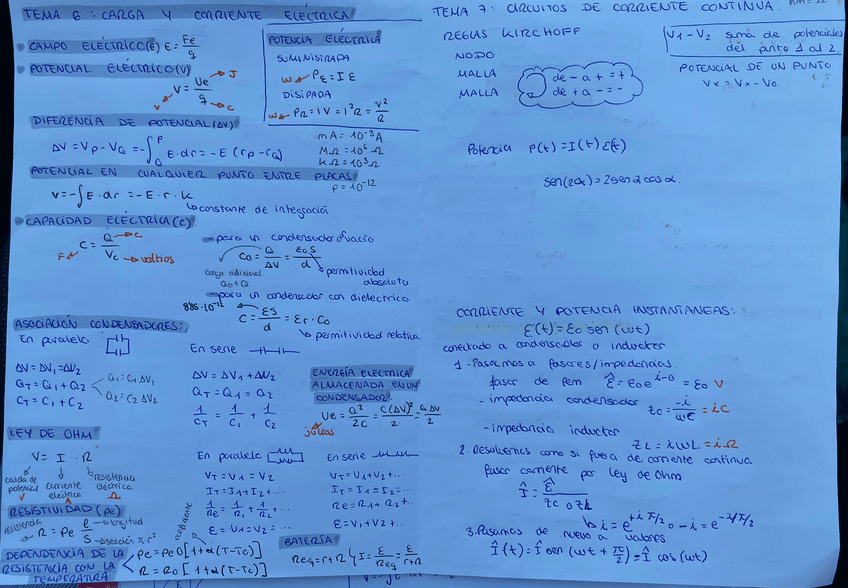 TEMA 6: CARGA Y CORRIENTE ELÉCTRICA
CAMPO ELÉCTRICO(E) E = Fe/q
POTENCIAL ELÉCTRICO(V)
V = Ue/q
J
V
C
POTENCIA ELÉCTRICA
SUMINISTRADA
W PE = I E
DISIPADA
W PR = IV = I²R = V²/R
DIFERENCIA DE POTENCIAL(ΔV)
ΔV = VP - VQ = -∫ E·dr = -E (rP - rQ)
mA = 10⁻³A
MΩ = 10⁶ Ω
KΩ = 10³Ω
P = 10⁻¹²
POTENCIAL EN CUALQUIER PUNTO ENTRE PLACAS
V = -∫E·dr = -E·r·K
constante de integración
CAPACIDAD ELÉCTRICA(C)
C = Q/Vc
C
F
voltios
para un condensador vacío
C0 = Q/ΔV = ε0S/d
carga adicional
Q0+Q
permitividad absoluta
para un condensador con dieléctrico
C = εS/d = εr·C0
permitividad relativa
ASOCIACIÓN CONDENSADORES:
En paralelo
ΔV = ΔV1 = ΔV2
QT = Q1 + Q2
Q1 = C1 ΔV1
Q2 = C2 ΔV2
CT = C1 + C2
En serie
ΔV = ΔV1 + ΔV2
QT = Q1 = Q2
1/CT = 1/C1 + 1/C2
ENERGÍA ELECTRICA
ALMACENADA EN UN
CONDENSADOR:
Ue = Q²/2C = C(ΔV)²/2 = QΔV/2
julios
LEY DE OHM
V = I · R
caida de potencial
V
corriente eléctrica
A
resistencia eléctrica
Ω
En paralelo
VT = V1 = V2
IT = I1 + I2...
1/Re = 1/R1 + 1/R2...
E = V1 = V2 = ...
En serie
VT = V1 + V2 + ...
IT = I1 = I2 = ...
Re = R1 + R2 + ...
E = V1 + V2 + ...
RESISTIVIDAD (ρe)
resistencia
R = ρe l/S
longitud
sección π·r²
DEPENDENCIA DE LA
RESISTENCIA CON LA
TEMPERATURA
ρe = ρe0[1+α(T-T0)]
R = R0[1+α(T-T0)]
BATERÍA
Req = r+R y I = E/Req = E/r+R
TEMA 7: CIRCUITOS DE CORRIENTE CONTINUA
REGLAS KIRCHOFF
NODO
MALLA
MALLA
de - a + = +
de + a - = -
V1 - V2 suma de potenciales
del punto 1 al 2.
POTENCIAL DE UN PUNTO
Vx = Vx - V0.
Potencia P(t) = I(t) E(t)
sen(2α) = 2 sen α cos α.
CORRIENTE Y POTENCIA INSTANTÁNEAS:
E(t) = E0 sen (ωt)
conectado a condensador o inductor
1 - Pasamos a fasores/impedancias.
fasor de fem Ê = E0 e^i·0 = E0 V
- impedancia condensador ZC = -i/ωC = iC
- impedancia inductor
ZL = iωL = iΩ
2. Resolvemos como si fuera de corriente continua
Fasor corriente por Ley de Ohm
Î = Ê/ZC o ZL
i = e^+i π/2 o -i = e^-iπ/2
3. Pasamos de nuevo a valores
Î(t) = Î sen (ωt + π/2) = Î cos (ωt)